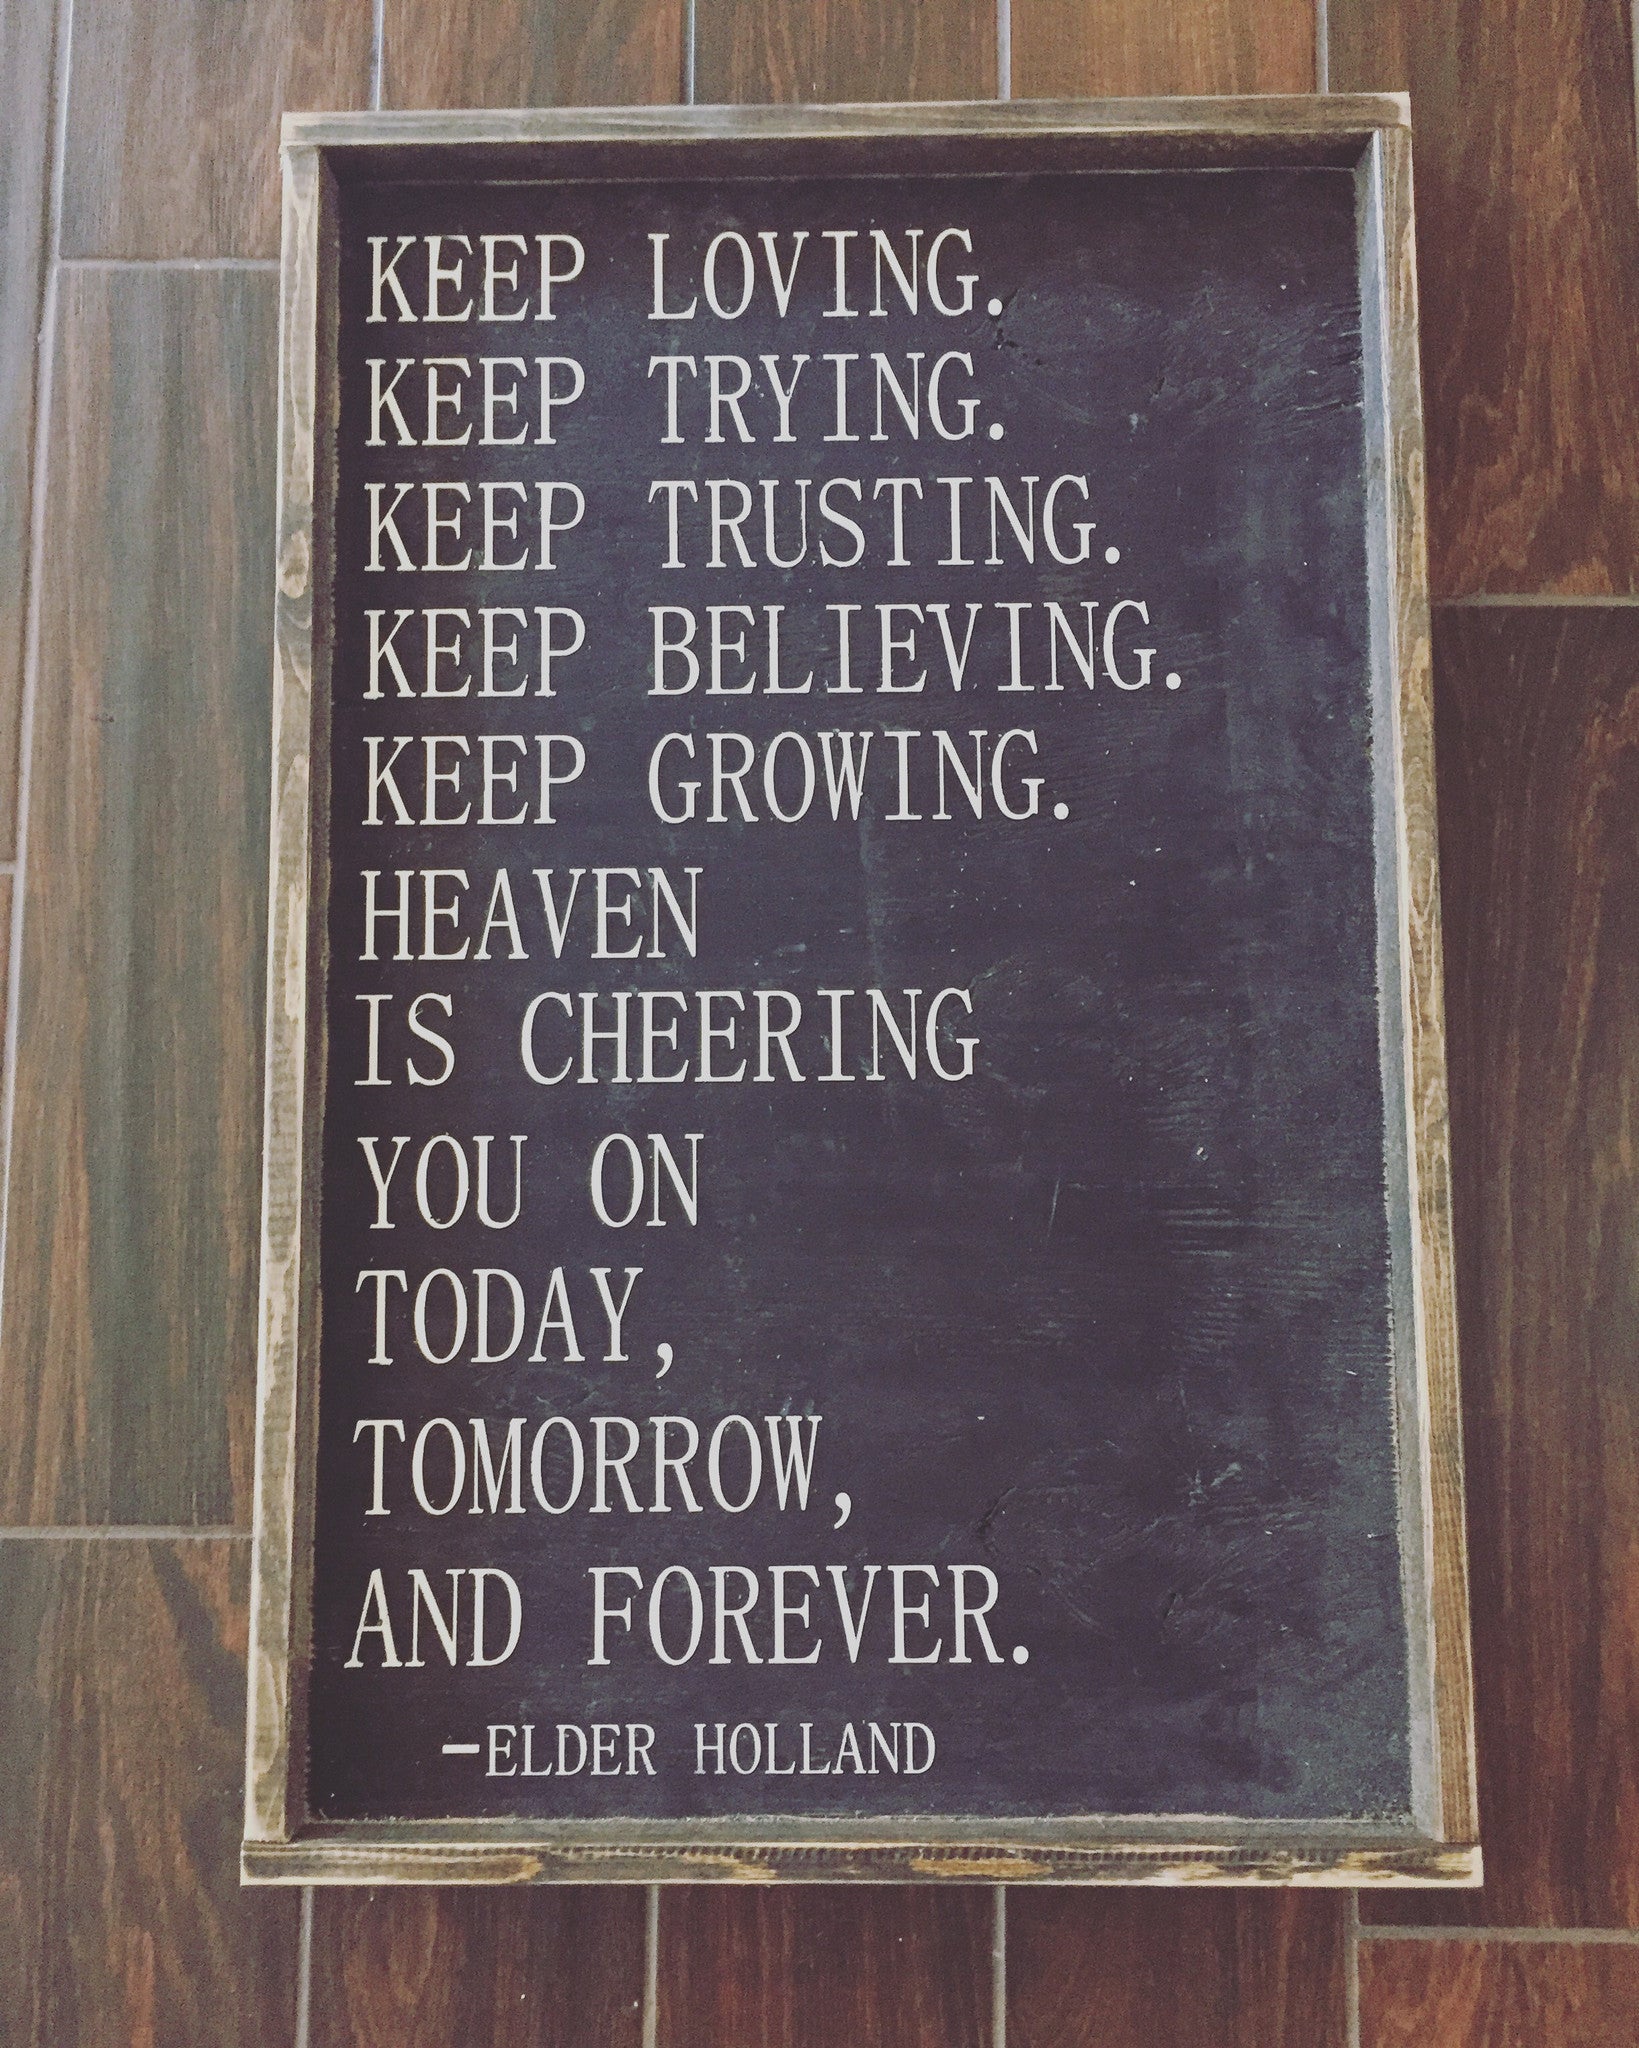 KEEP LOVING.
KEEP TRYING.
KEEP TRUSTING.
KEEP BELIEVING.
KEEP GROWING.
HEAVEN
IS CHEERING
YOU ON
TODAY,
TOMORROW,
AND FOREVER.
-ELDER HOLLAND